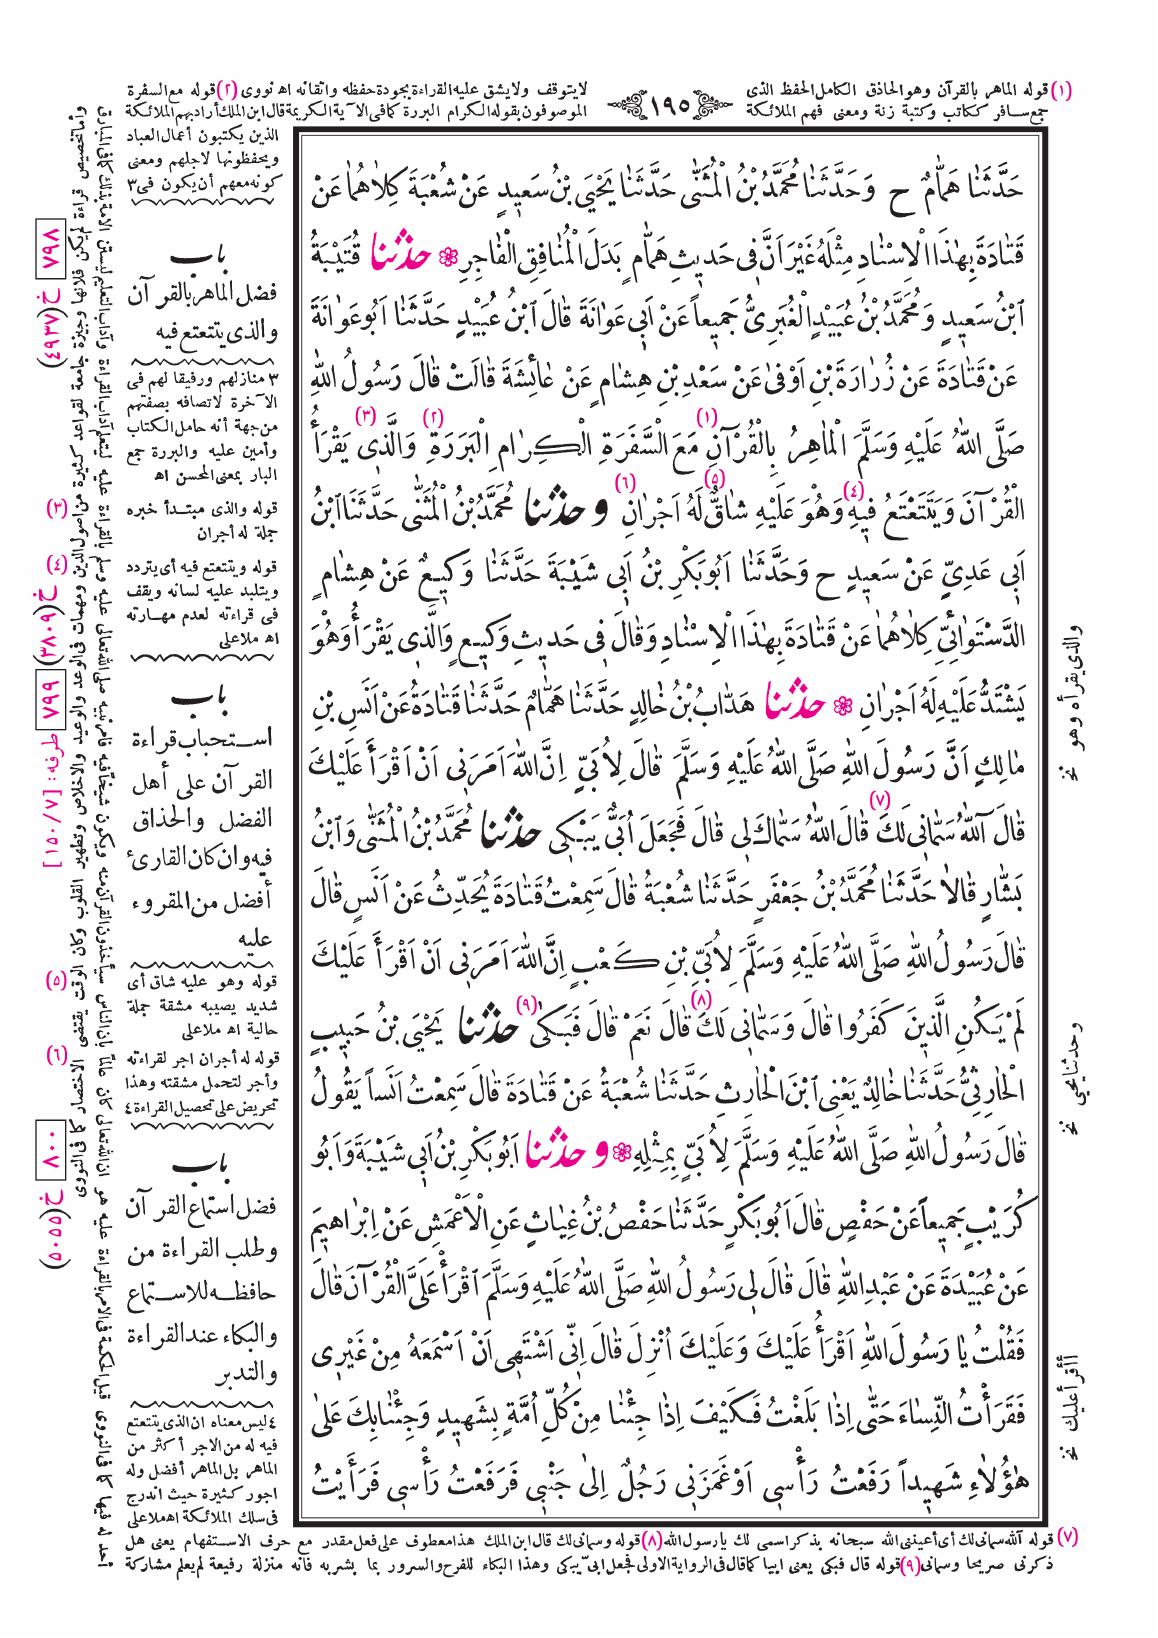 (١) قوله الماهر بالقرآن وهو الحاذق الكامل الحفظ الذى
لايتوقف ولايشق عليه القراءة بجودة حفظه واتقانه اه نووى (٢) قوله مع السفرة
﴿١٩٥﴾
جمع سافر ككاتب وكتبة زنة ومعنى فهم الملائكة
الموصوفون بقوله الكرام البررة كما فى الآية الكريمة قال ابن الملك أراد بهم الملائكة
الذين يكتبون أعمال العباد
ويحفظونها لاجلهم ومعنى
كونه معهم أن يكون فى ٣
باب
فضل الماهر بالقرآن
والذى يتتعتع فيه
٣ منازلهم ورفيقا لهم فى
الآخرة لاتصافه بصفتهم
من جهة أنه حامل الكتاب
وأمين عليه والبررة جمع
البار بمعنى المحسن اه
قوله والذى مبتدأ خبره
جملة له أجران
قوله ويتتعتع فيه أى يتردد
ويتلبد عليه لسانه ويقف
فى قراءته لعدم مهارته
اه ملاعلى
باب
استحباب قراءة
القرآن على أهل
الفضل والحذاق
فيه وان كان القارئ
أفضل من المقروء
عليه
قوله وهو عليه شاق أى
شديد يصيبه مشقة جملة
حالية اه ملاعلى
قوله له أجران اجر لقراءته
وأجر لتحمل مشقته وهذا
تحريض على تحصيل القراءة ٤
باب
فضل استماع القرآن
وطلب القراءة من
حافظه للاستماع
والبكاء عند القراءة
والتدبر
٤ ليس معناه ان الذى يتتعتع
فيه له من الاجر أكثر من
الماهر بل الماهر أفضل وله
اجور كثيرة حيث اندرج
فى سلك الملائكة اه ملاعلى
٧٩٨
خ (٤٩٣٧)
(٣)
(٤)
خ (٣٨٠٩)
٧٩٩
طرفه: [٧/ ١٥٠]
(٥)
(٦)
٨٠٠
خ (٥٠٥٥)
حَدَّثَنَا هَمَّامٌ ح وَحَدَّثَنَا مُحَمَّدُ بْنُ الْمُثَنَّى حَدَّثَنَا يَحْيَى بْنُ سَعِيدٍ عَنْ شُعْبَةَ كِلَاهُمَا عَنْ
قَتَادَةَ بِهٰذَا الْاِسْنَادِ مِثْلَهُ غَيْرَ اَنَّ فِى حَدِيثِ هَمَّامٍ بَدَلَ الْمُنَافِقِ الْفَاجِرِ ❁ حدثنا قُتَيْبَةُ
ابْنُ سَعِيدٍ وَمُحَمَّدُ بْنُ عُبَيْدٍ الْغُبَرِىُّ جَمِيعاً عَنْ اَبِى عَوَانَةَ قَالَ ابْنُ عُبَيْدٍ حَدَّثَنَا اَبُو عَوَانَةَ
عَنْ قَتَادَةَ عَنْ زُرَارَةَ بْنِ اَوْفٰى عَنْ سَعْدِ بْنِ هِشَامٍ عَنْ عَائِشَةَ قَالَتْ قَالَ رَسُولُ اللهِ
صَلَّى اللهُ عَلَيْهِ وَسَلَّمَ الْمَاهِرُ بِالْقُرْآنِ (١) مَعَ السَّفَرَةِ الْكِرَامِ الْبَرَرَةِ (٢) وَالَّذِى (٣) يَقْرَأُ
الْقُرْآنَ وَيَتَتَعْتَعُ فِيهِ (٤) وَهُوَ عَلَيْهِ شَاقٌّ (٥) لَهُ اَجْرَانِ (٦) وحدثنا مُحَمَّدُ بْنُ الْمُثَنَّى حَدَّثَنَا ابْنُ
اَبِى عَدِىٍّ عَنْ سَعِيدٍ ح وَحَدَّثَنَا اَبُو بَكْرِ بْنُ اَبِى شَيْبَةَ حَدَّثَنَا وَكِيعٌ عَنْ هِشَامٍ
الدَّسْتَوَائِىِّ كِلَاهُمَا عَنْ قَتَادَةَ بِهٰذَا الْاِسْنَادِ وَقَالَ فِى حَدِيثِ وَكِيعٍ وَالَّذِى يَقْرَأُ وَهُوَ
يَشْتَدُّ عَلَيْهِ لَهُ اَجْرَانِ ❁ حدثنا هَدَّابُ بْنُ خَالِدٍ حَدَّثَنَا هَمَّامٌ حَدَّثَنَا قَتَادَةُ عَنْ اَنَسِ بْنِ
مَالِكٍ اَنَّ رَسُولَ اللهِ صَلَّى اللهُ عَلَيْهِ وَسَلَّمَ قَالَ لِاُبَىٍّ اِنَّ اللهَ اَمَرَنِى اَنْ اَقْرَأَ عَلَيْكَ
قَالَ آللهُ سَمَّانِى لَكَ (٧) قَالَ اللهُ سَمَّاكَ لِى قَالَ فَجَعَلَ اُبَىٌّ يَبْكِى حدثنا مُحَمَّدُ بْنُ الْمُثَنَّى وَابْنُ
بَشَّارٍ قَالَا حَدَّثَنَا مُحَمَّدُ بْنُ جَعْفَرٍ حَدَّثَنَا شُعْبَةُ قَالَ سَمِعْتُ قَتَادَةَ يُحَدِّثُ عَنْ اَنَسٍ قَالَ
قَالَ رَسُولُ اللهِ صَلَّى اللهُ عَلَيْهِ وَسَلَّمَ لِاُبَىِّ بْنِ كَعْبٍ اِنَّ اللهَ اَمَرَنِى اَنْ اَقْرَأَ عَلَيْكَ
لَمْ يَكُنِ الَّذِينَ كَفَرُوا قَالَ وَسَمَّانِى لَكَ (٨) قَالَ نَعَمْ قَالَ فَبَكٰى (٩) حدثنا يَحْيَى بْنُ حَبِيبٍ
الْحَارِثِىُّ حَدَّثَنَا خَالِدٌ يَعْنِى ابْنَ الْحَارِثِ حَدَّثَنَا شُعْبَةُ عَنْ قَتَادَةَ قَالَ سَمِعْتُ اَنَساً يَقُولُ
قَالَ رَسُولُ اللهِ صَلَّى اللهُ عَلَيْهِ وَسَلَّمَ لِاُبَىٍّ بِمِثْلِهِ ❁ وحدثنا اَبُو بَكْرِ بْنُ اَبِى شَيْبَةَ وَاَبُو
كُرَيْبٍ جَمِيعاً عَنْ حَفْصٍ قَالَ اَبُو بَكْرٍ حَدَّثَنَا حَفْصُ بْنُ غِيَاثٍ عَنِ الْاَعْمَشِ عَنْ اِبْرَاهِيمَ
عَنْ عُبَيْدَةَ عَنْ عَبْدِ اللهِ قَالَ قَالَ لِى رَسُولُ اللهِ صَلَّى اللهُ عَلَيْهِ وَسَلَّمَ اقْرَأْ عَلَىَّ الْقُرْآنَ قَالَ
فَقُلْتُ يَا رَسُولَ اللهِ اَقْرَأُ عَلَيْكَ وَعَلَيْكَ اُنْزِلَ قَالَ اِنِّى اَشْتَهِى اَنْ اَسْمَعَهُ مِنْ غَيْرِى
فَقَرَأْتُ النِّسَاءَ حَتَّى اِذَا بَلَغْتُ فَكَيْفَ اِذَا جِئْنَا مِنْ كُلِّ اُمَّةٍ بِشَهِيدٍ وَجِئْنَا بِكَ عَلٰى
هٰؤُلَاءِ شَهِيداً رَفَعْتُ رَأْسِى اَوْ غَمَزَنِى رَجُلٌ اِلٰى جَنْبِى فَرَفَعْتُ رَأْسِى فَرَأَيْتُ
والذى يقرأه وهو نخ
وحدثنا يحيى نخ
أأقرأ عليك نخ
(٧) قوله آلله سمانى لك أى أعيننى الله سبحانه بذكر اسمى لك يا رسول الله (٨) قوله وسمانى لك قال ابن الملك هذا معطوف على فعل مقدر مع حرف الاستفهام يعنى هل
ذكرنى صريحا وسمانى (٩) قوله قال فبكى يعنى ابيا كما قال فى الرواية الاولى فجعل ابىّ يبكى وهذا البكاء للفرح والسرور بما بشر به فانه منزلة رفيعة لم يعلم مشاركة
أحد له فيها كما فى النووى قيل الحكمة فى الامر بالقراءة عليه هو ان الله تعالى كان عالماً بان الناس سيأخذون القرآن منه ويكون شيخاً فيه فامر نبيه صلى الله تعالى عليه وسلم بالقراءة عليه ليتعلم آداب القراءة وآداب التعليم ليسنن الامة بذلك كما فى المبارق
وأما تخصيص قراءة لم يكن فلانها وجيزة جامعة لقواعد كثيرة من اصول الدين ومهمات فى الوعد والوعيد والاخلاص وتطهير القلوب وكان الوقت يقتضى الاختصار كما فى النووى